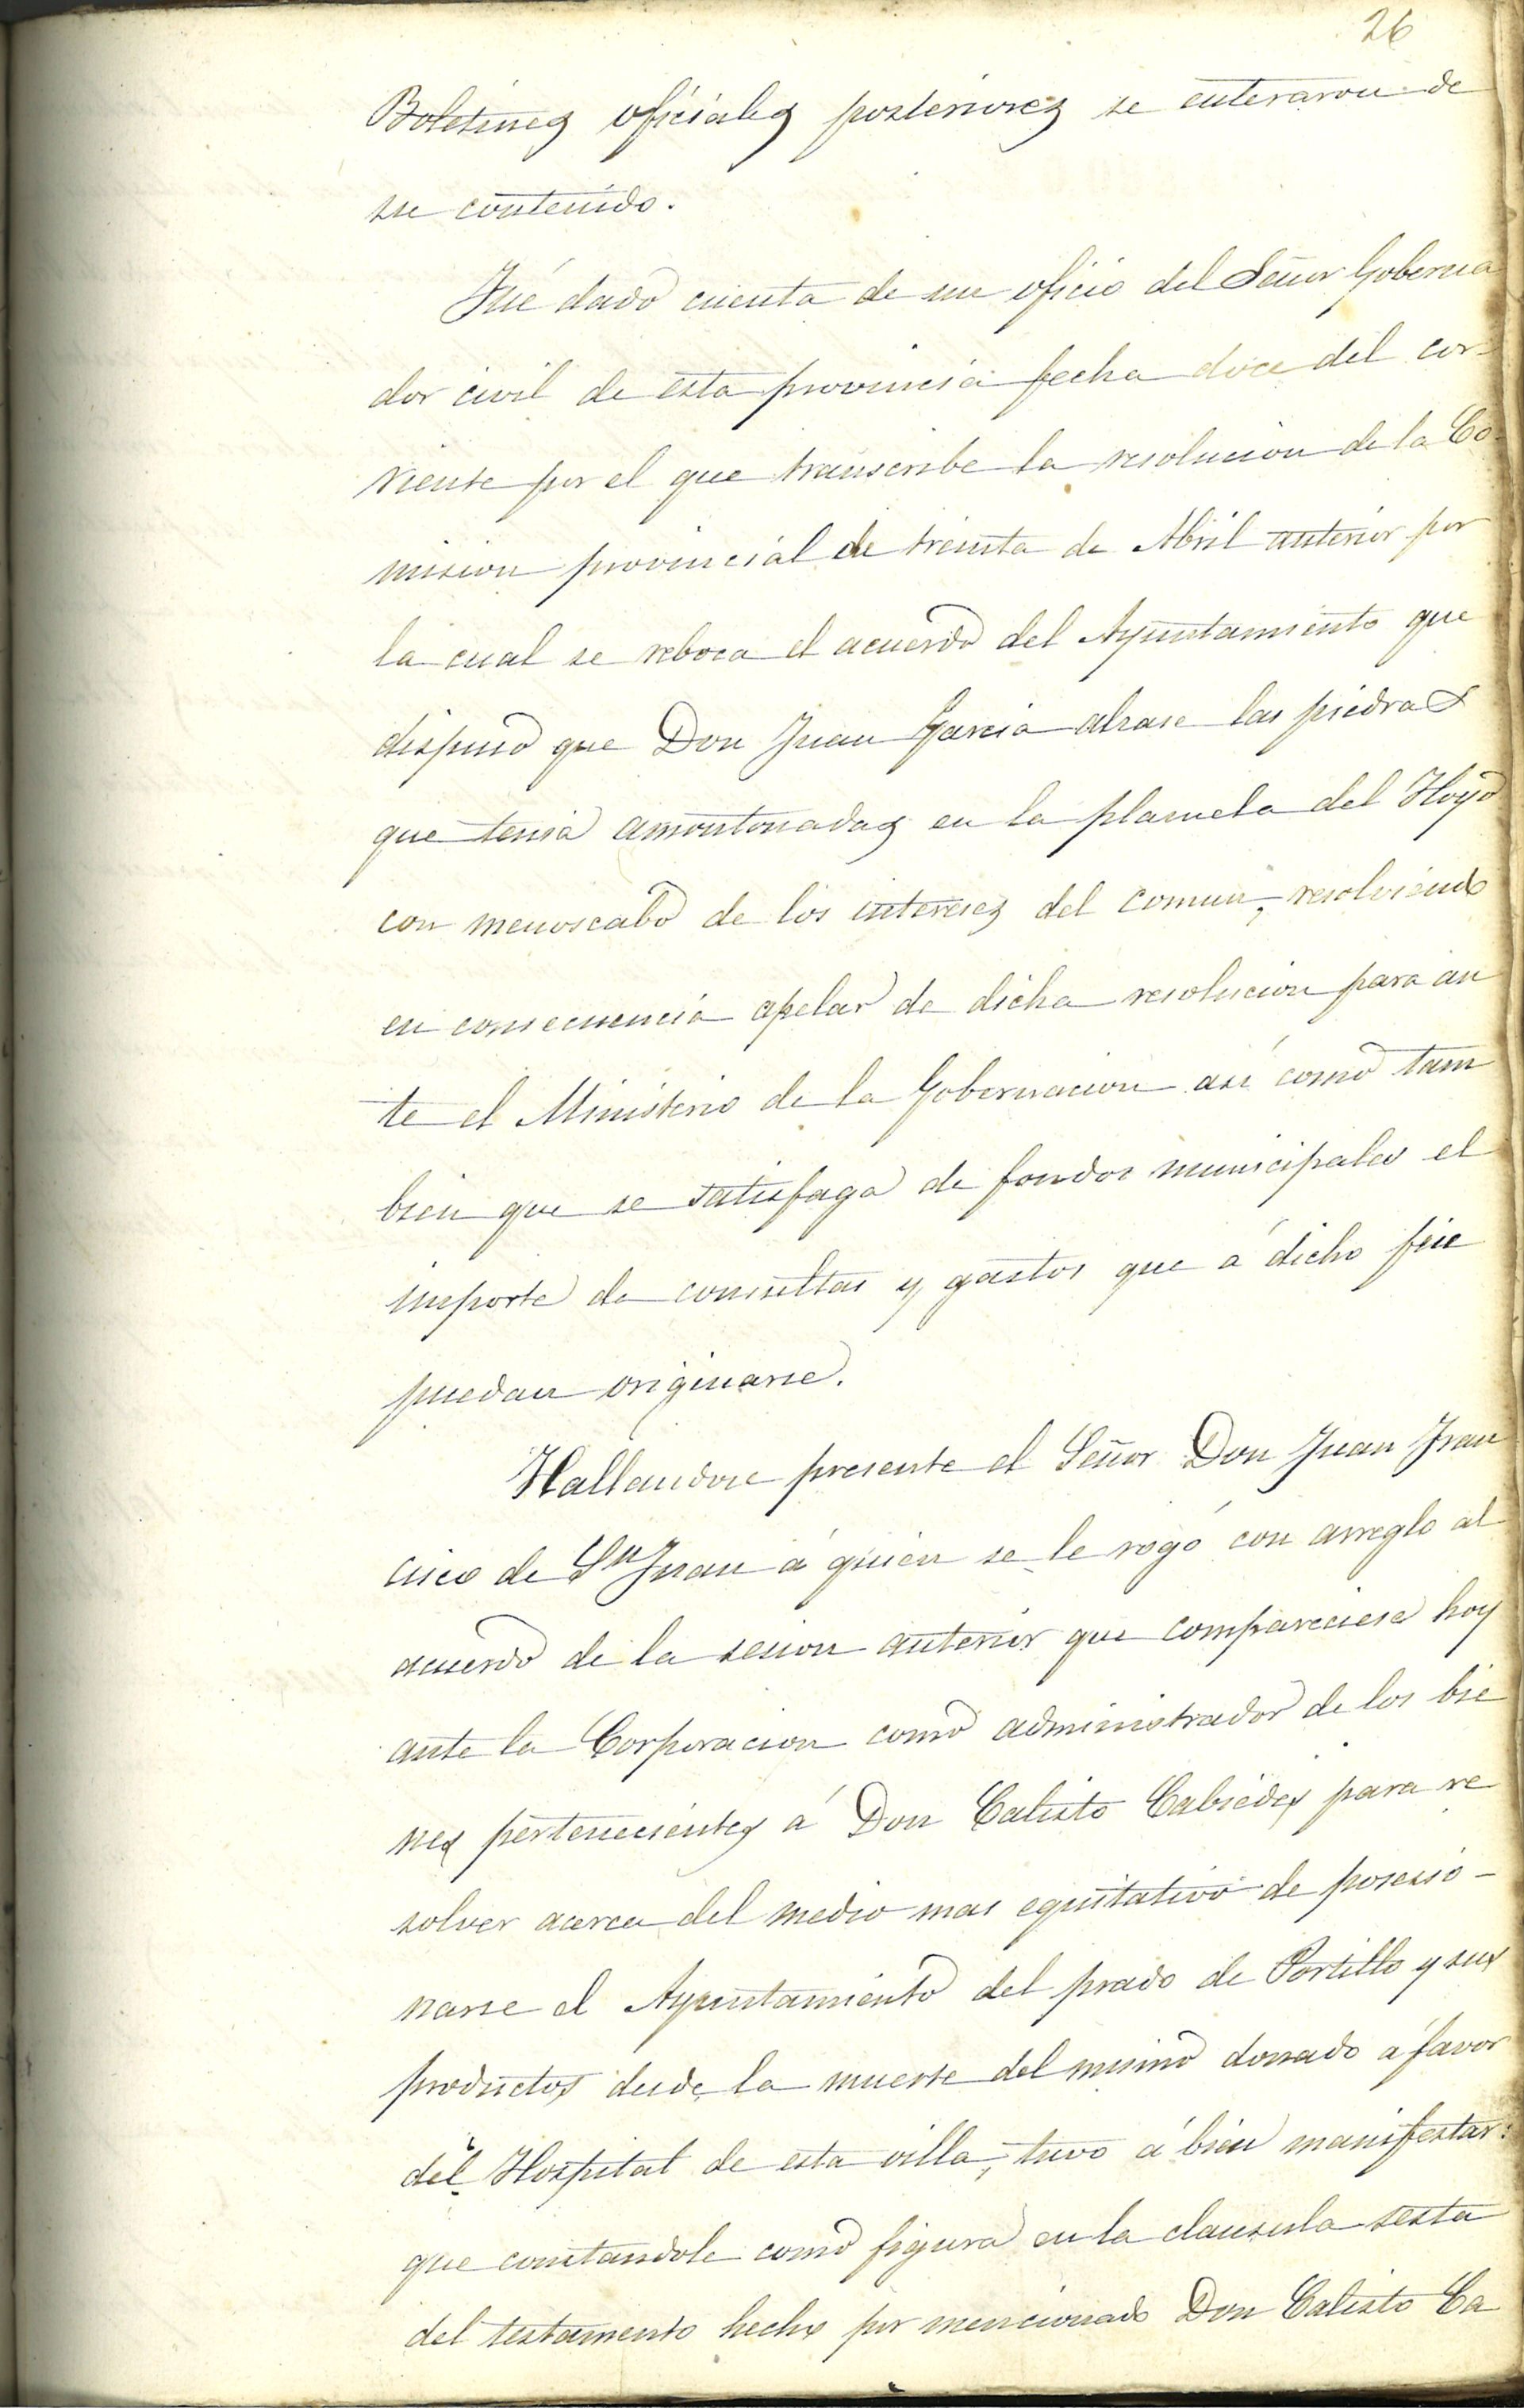 26
Boletines oficiales posteriores se enteraron de
su contenido.
Fué dado cuenta de un oficio del Señor Goberna
dor civil de esta provincia fecha doce del cor-
riente por el que transcribe la resolucion de la Co-
mision provincial de treinta de Abril anterior por
la cual se reboca el acuerdo del Ayuntamiento que
dispuso que Don Juan Garcia alzase las piedras
que tenia amontonadas en la plazuela del Hoyo
con menoscabo de los intereses del comun, resolviendo
en consecuencia apelar de dicha resolucion para an
te el Ministerio de la Gobernacion asi como tam
bien que se satisfaga de fondos municipales el
importe de consultas y gastos que á dicho fin
puedan originarse.
Hallandose presente el Señor Don Juan Fran
cisco de Sn Juan á quien se le rogó con arreglo al
acuerdo de la sesion anterior que compareciese hoy
ante la Corporacion como administrador de los bie
nes pertenecientes á Don Calisto Cabiedes para re
solver acerca del medio mas equitativo de posesio-
narse el Ayuntamiento del prado de Portillo y sus
productos desde la muerte del mismo donado á favor
del Hospital de esta villa, tuvo á bien manifestar:
que constandole como figura en la clausula sesta
del testamento hecho por mencionado Don Calisto Ca